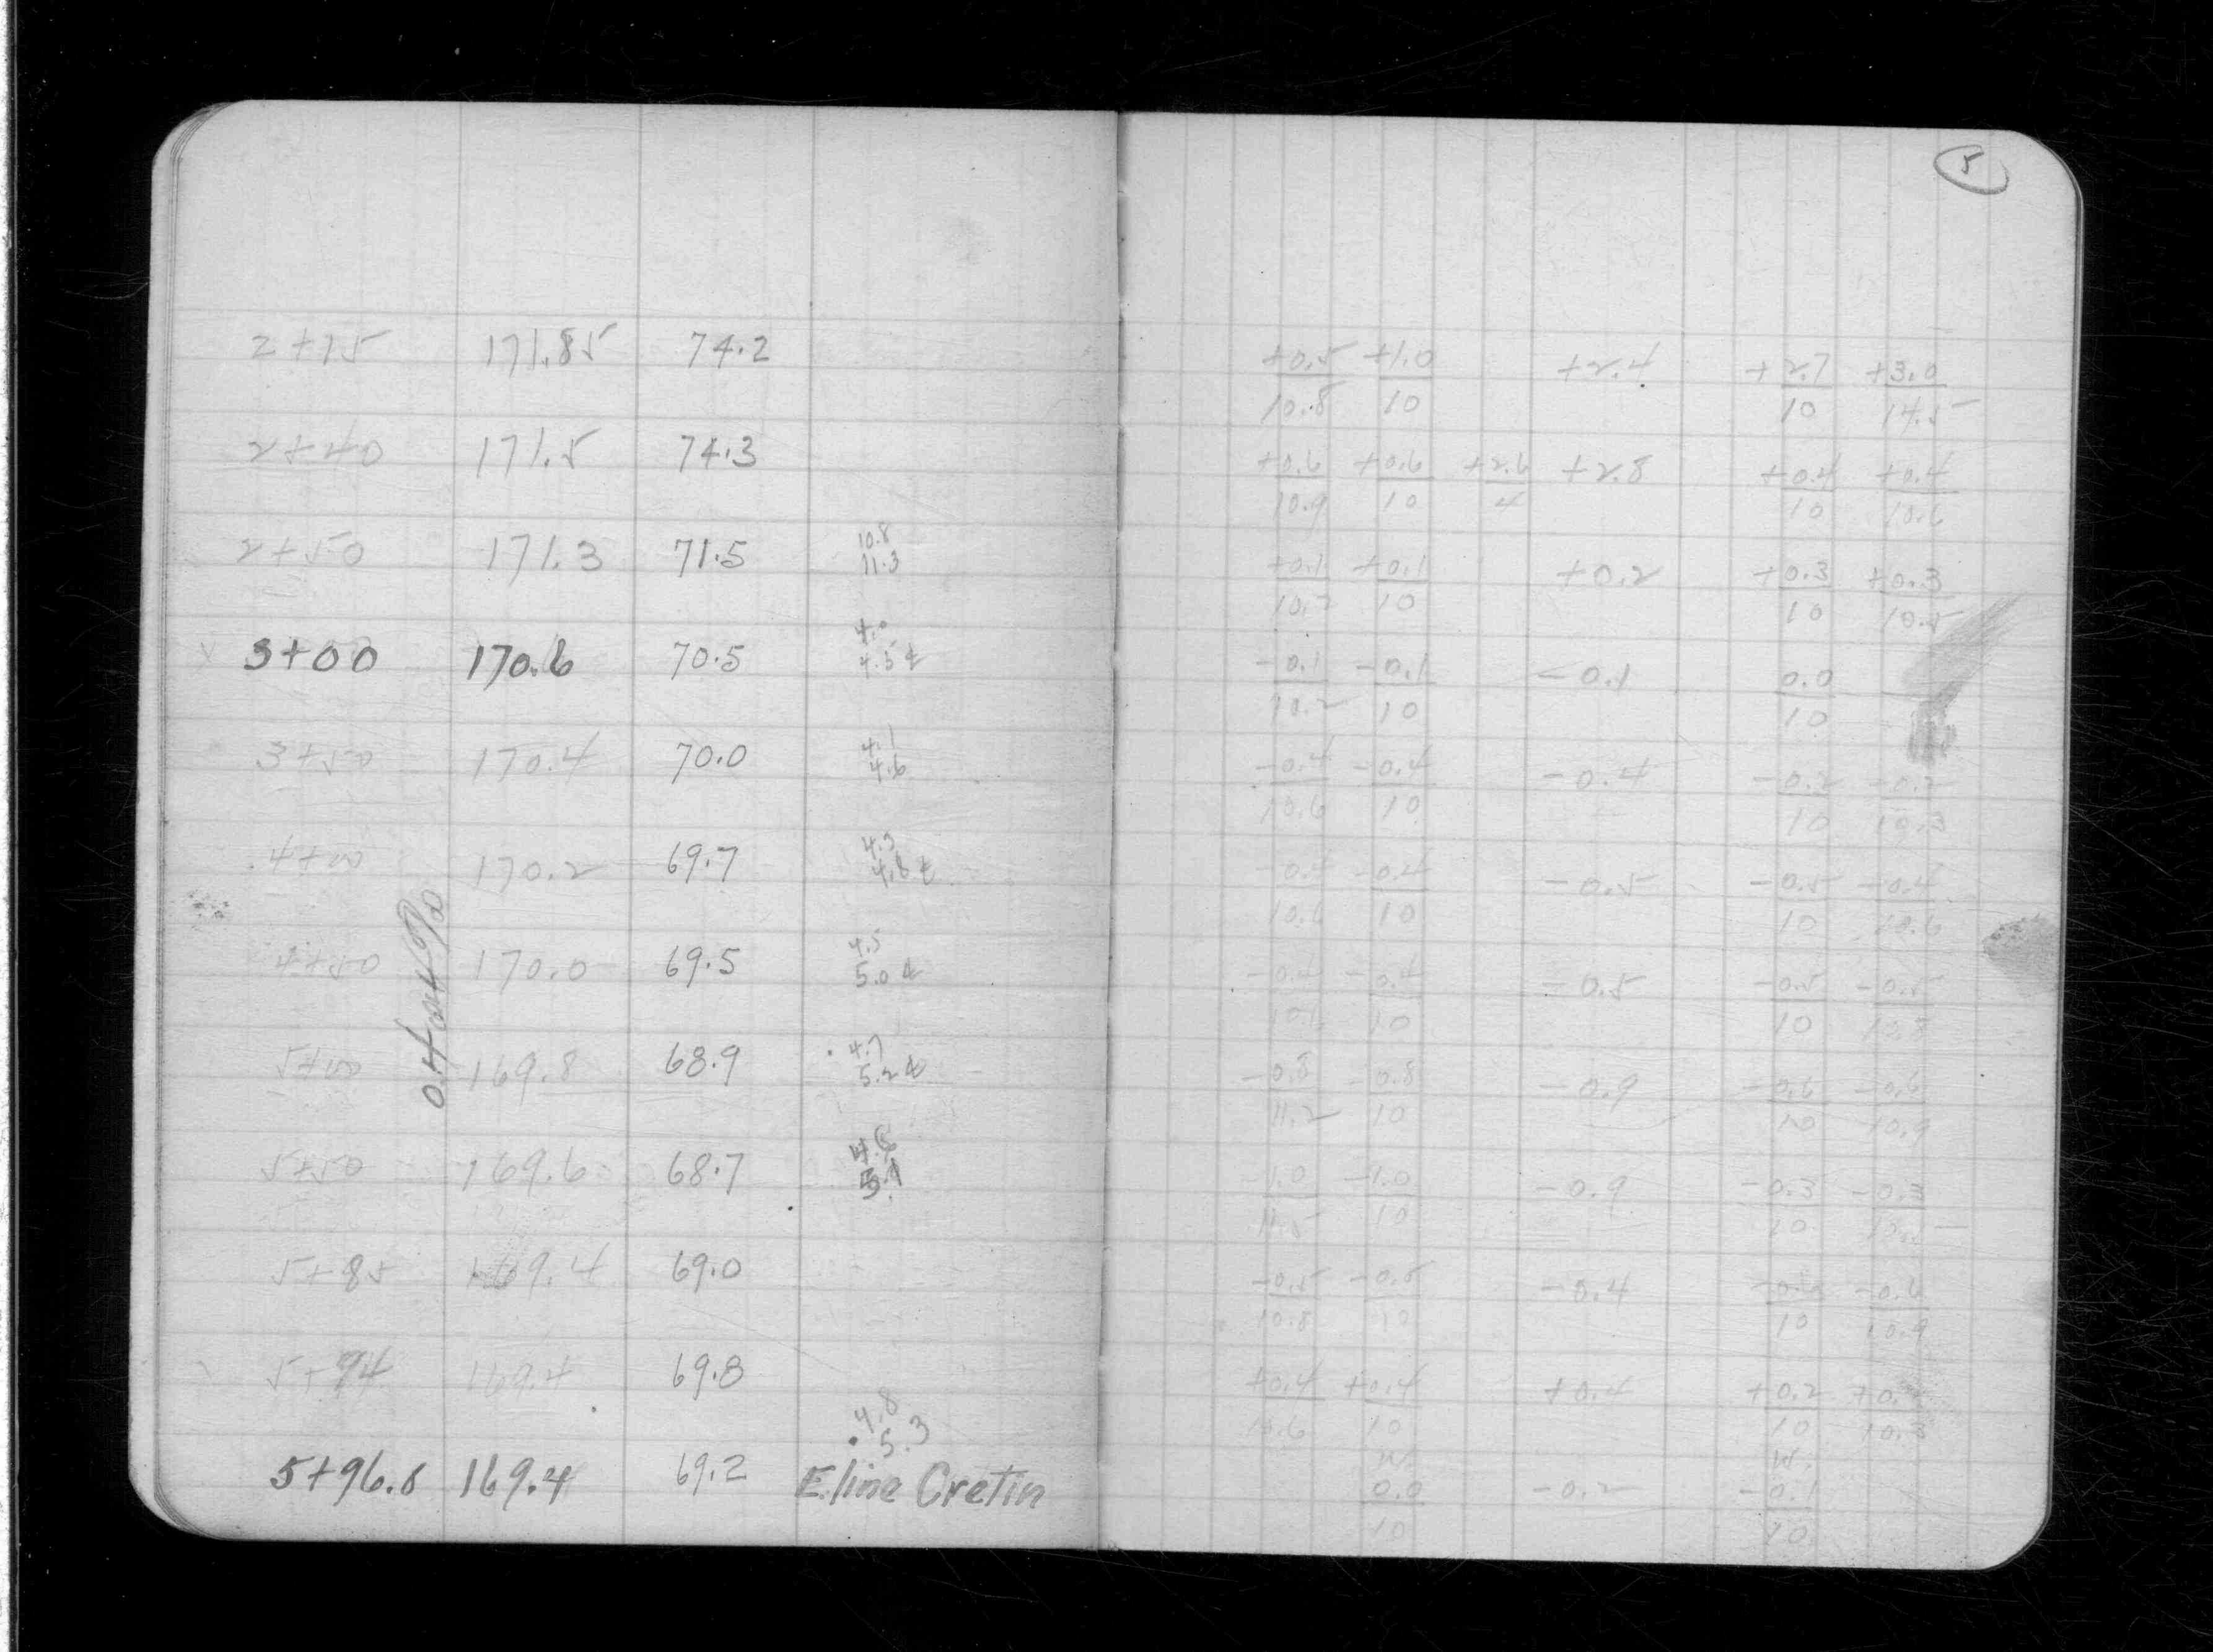 5
2+15 171.85 74.2
+0.5 +1.0 +2.4 +2.7 +3.0
10.8 10 10 14.5
2+40 171.5 74.3
+0.6 +0.6 +2.6 +2.8 +0.4 +0.4
10.9 10 4 10 10.6
2+50 171.3 71.5 10.8
11.3
+0.1 +0.1 +0.2 +0.3 +0.3
10.2 10 10 10.5
3+00 170.6 70.5 4.0
4.5 ℄
-0.1 -0.1 -0.1 0.0
10.2 10 10
3+50 170.4 70.0 4.1
4.6
-0.4 -0.4 -0.4 -0.2 -0.2
10.6 10 10 10.3
4+00 170.2 69.7 4.3
4.8 ℄
-0.4 -0.4 -0.5 -0.5 -0.4
10.6 10 10 10.6
4+50 170.0 69.5 4.5
5.0 ℄
-0.4 -0.4 -0.5 -0.5 -0.5
10 10 10.8
5+00 169.8 68.9 4.7
5.2 ℄
-0.8 -0.8 -0.9 -0.6 -0.6
11.2 10 10 10.9
5+50 169.6 68.7
-1.0 -1.0 -0.9 -0.3 -0.3
11.5 10 10
5+85 169.4 69.0
-0.5 -0.5 -0.4 -0.6
10.8 10 10 10.9
5+94 169.4 69.8
+0.4 +0.4 +0.4 +0.2
10.6 10 10 10.3
4.8
5.3
5+96.8 169.4 69.2 E. line Cretin
W. W.
0.0 -0.2 -0.1
10 10